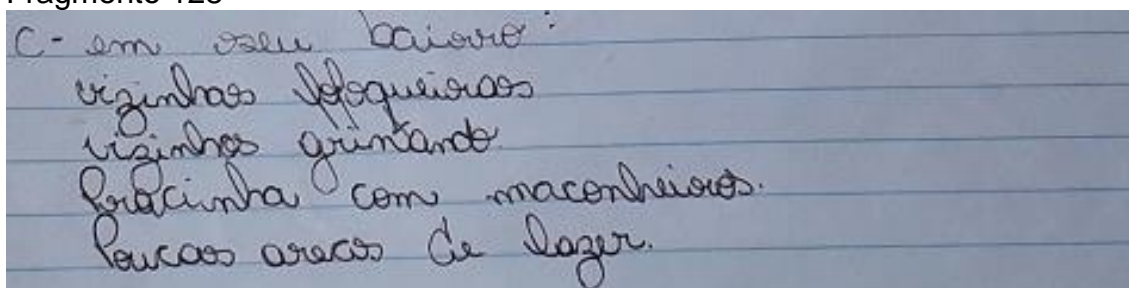 Fragmento 123
C- em seu bairro:
vizinhas fofoqueiras
vizinhos grintando
Pracinha com maconheiros.
Poucas areas de lazer.